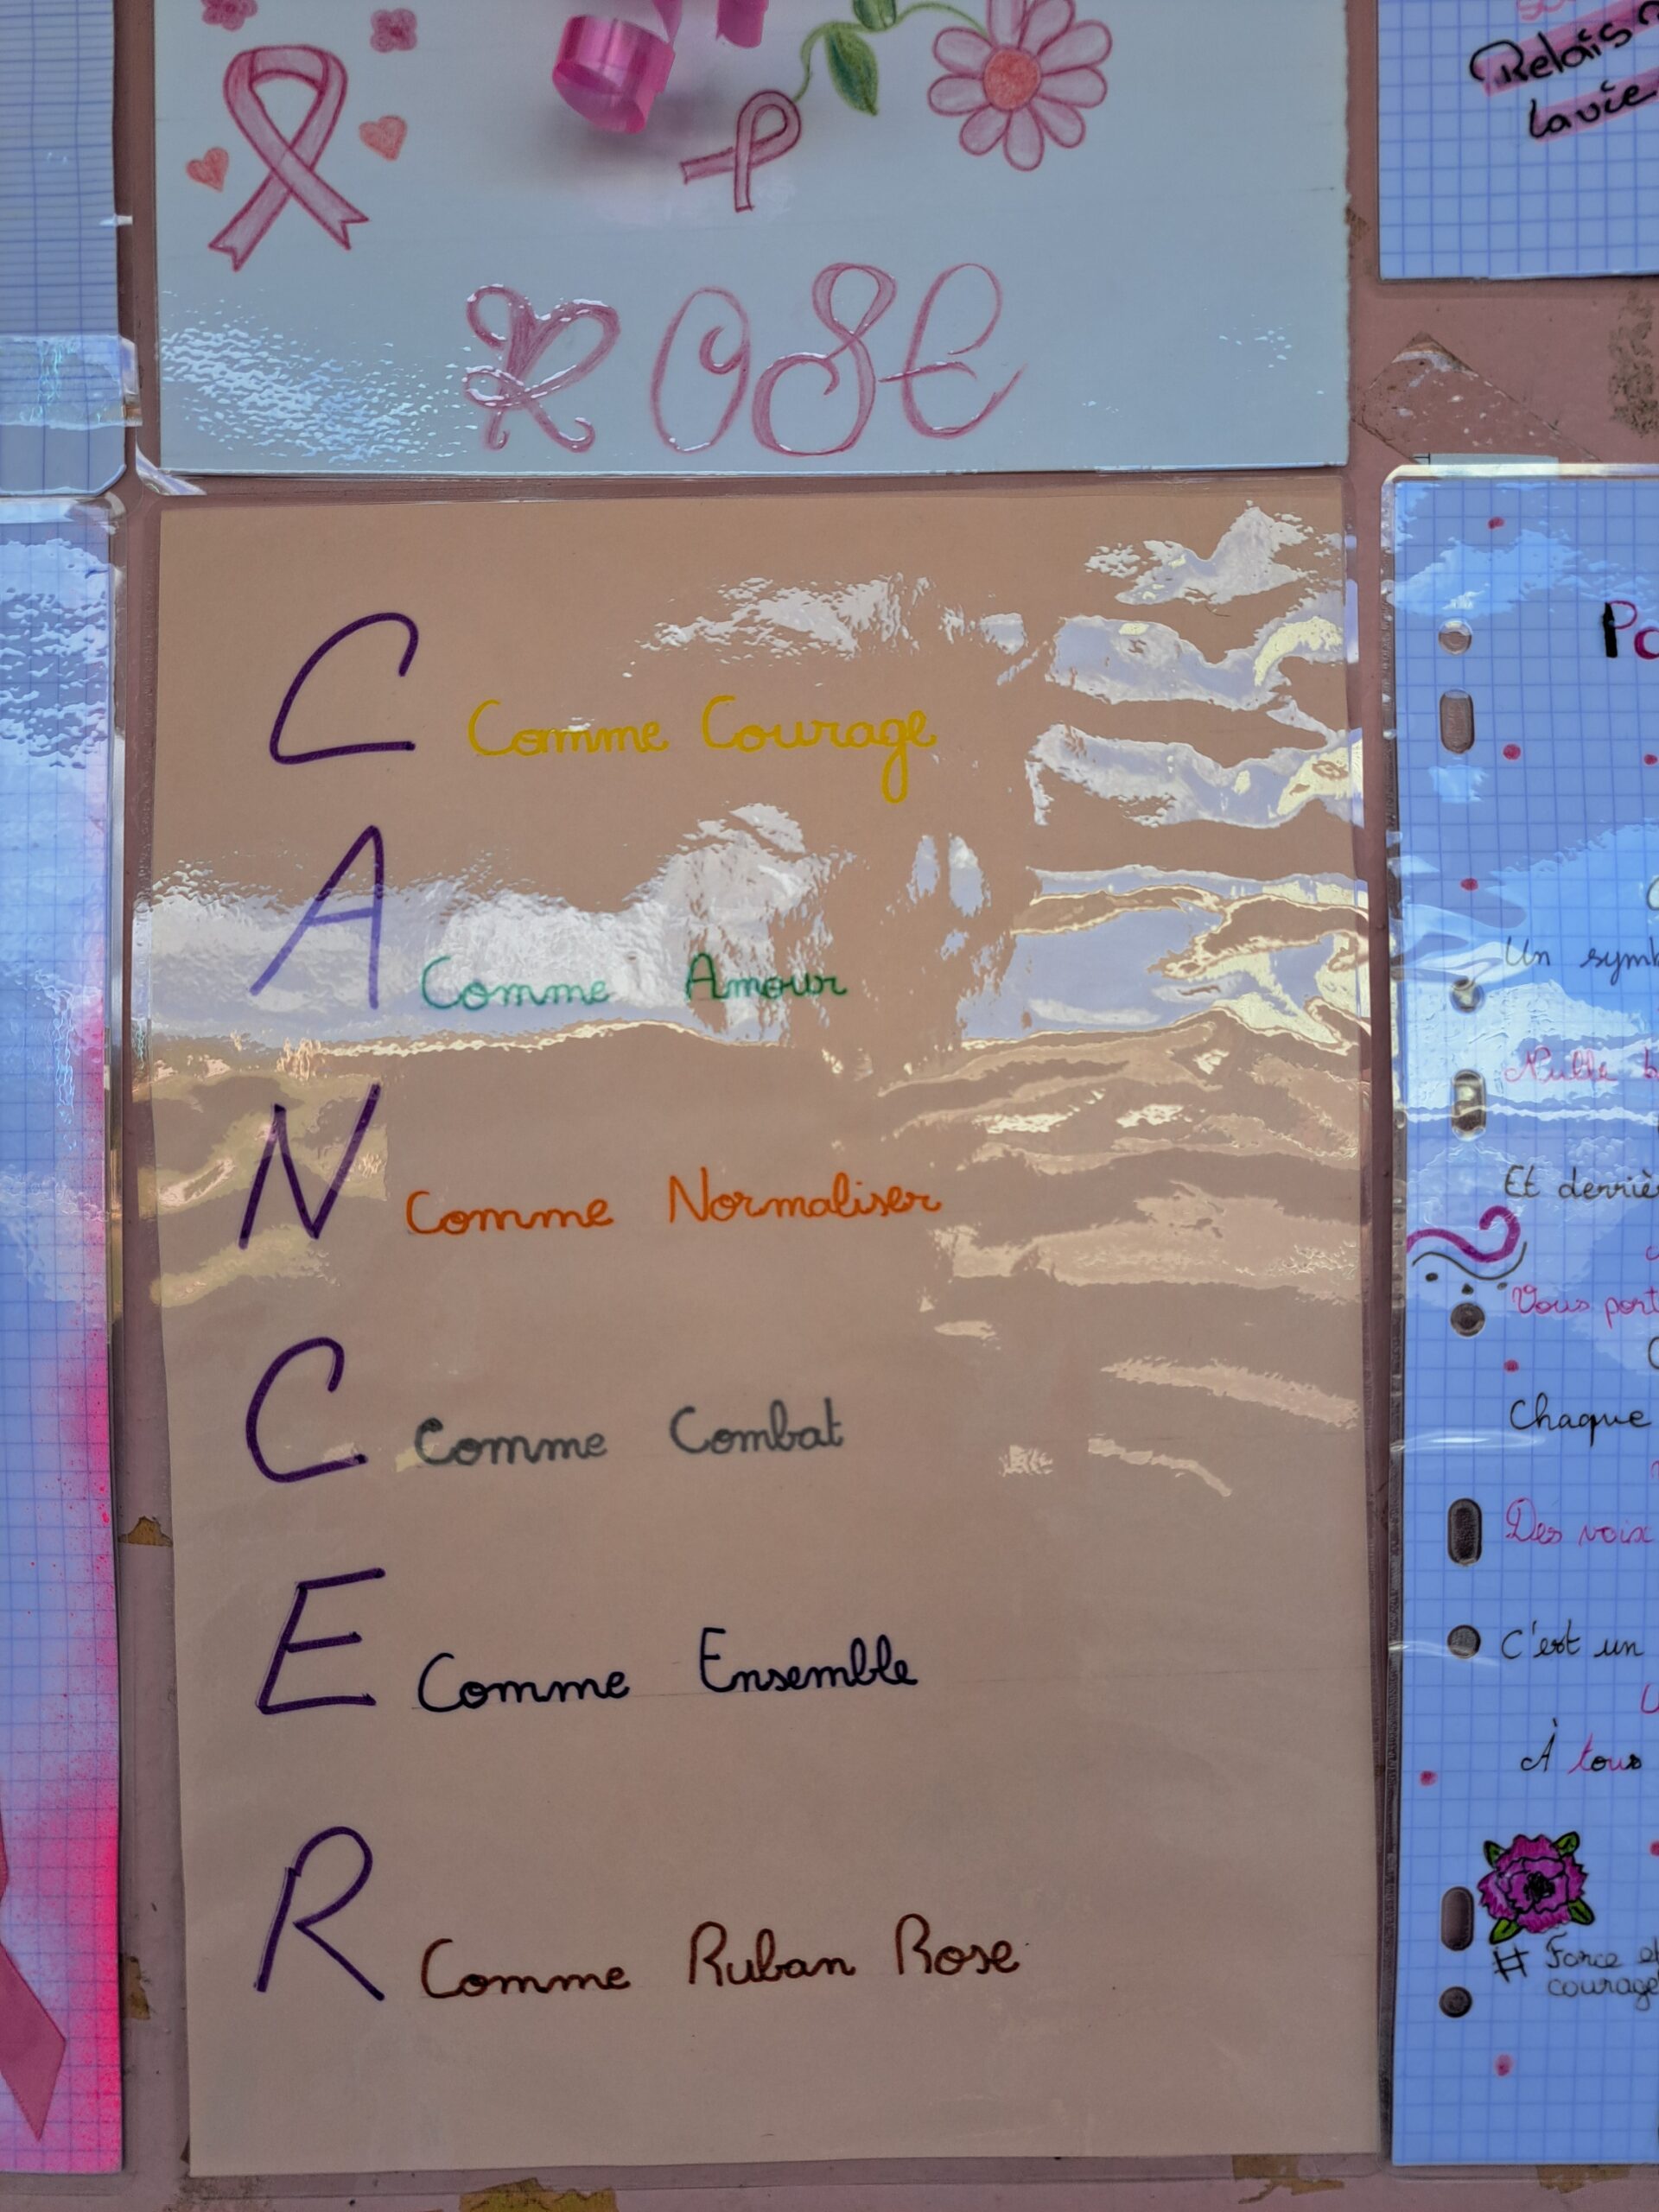 Relais
La vie
ROSE
C Comme Courage
A Comme Amour
N Comme Normaliser
C Comme Combat
E Comme Ensemble
R Comme Ruban Rose
Un
Et
Vous
Chaque
Des voix
C'est un
À tous
# Force
courage